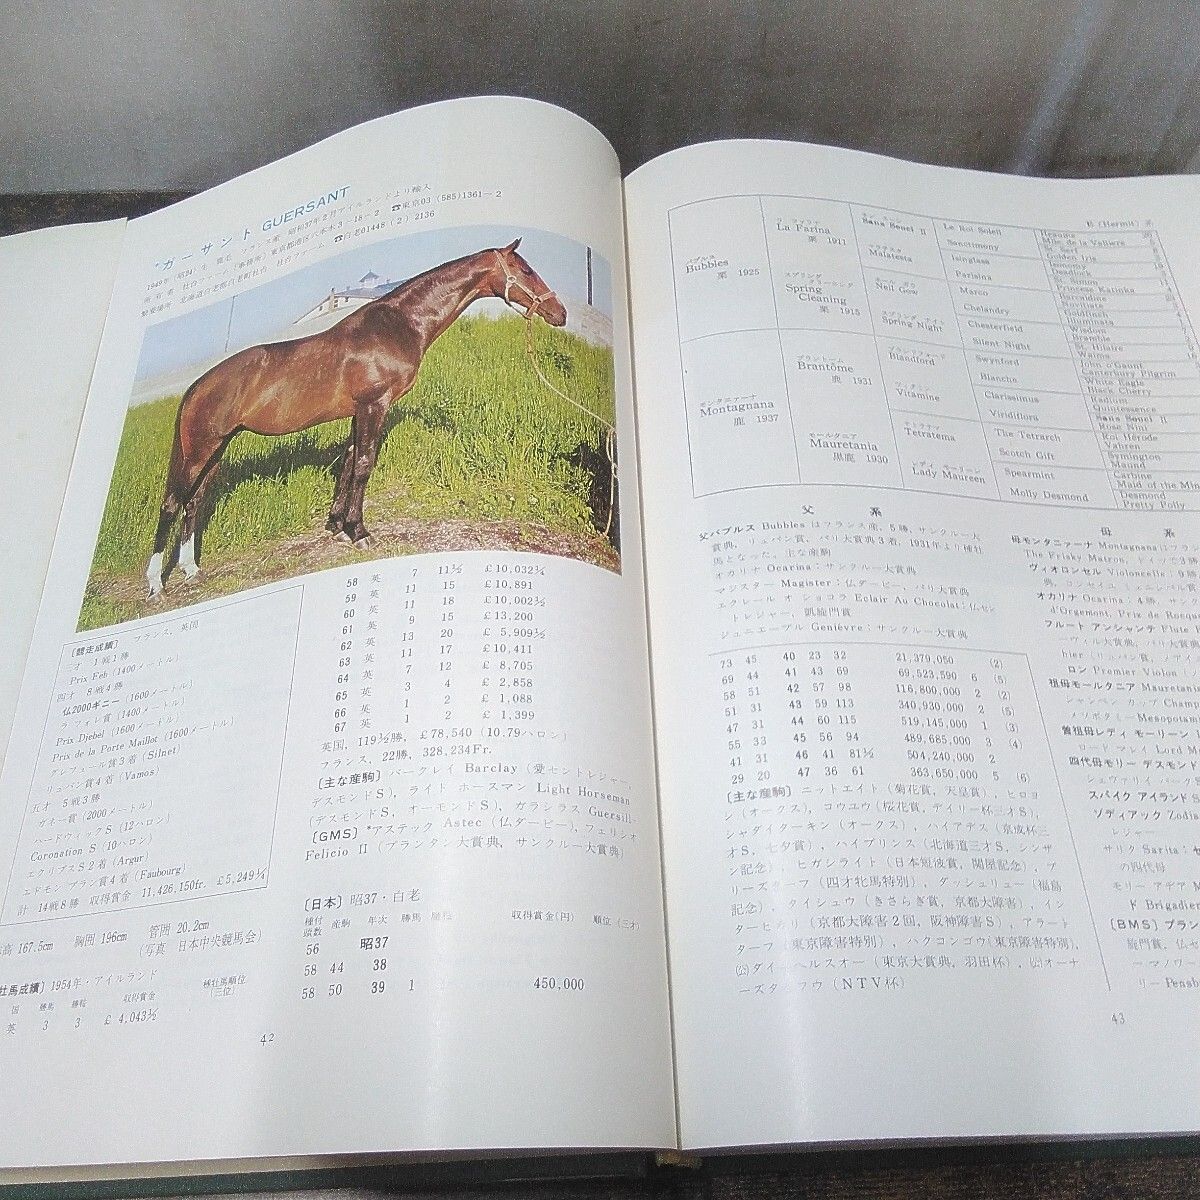 *ガーサント GUERSANT
1949年(昭24)生 鹿毛 フランス産 昭和37年2月アイルランドより輸入
所有者 社台ファーム(事務所)東京都港区六本木3-18-2 ☎東京03(585)1361-2
繋養場所 北海道白老郡白老町社台 社台ファーム ☎白老01448(2)2136
[競走成績] フランス,英国
三才 1戦1勝
Prix Feb (1400メートル)
四才 8戦4勝
仏2000ギニー (1600メートル)
ラ フォレ賞 (1400メートル)
Prix Djebel (1600メートル)
Prix de la Porte Maillot (1600メートル)
グレフュール賞3着 (Silnet)
リュパン賞4着 (Vamos)
五才 5戦3勝
ガネー賞 (2000メートル)
ハードウィックS (12ハロン)
Coronation S (10ハロン)
エクリプスS 2着 (Argur)
エドモン ブラン賞4着 (Faubourg)
計 14戦8勝 収得賞金 11,426,150fr. £5,249¼
高 167.5cm 胸囲 196cm 管囲 20.2cm
(写真 日本中央競馬会)
牡馬成績] 1954年・アイルランド
国 勝馬 勝鞍 収得賞金 種牡馬順位(三位)
英 3 3 £ 4,043½
58 英 7 11½ £10,032¼
59 英 11 15 £10,891
60 英 11 18 £10,002½
61 英 9 15 £13,200
62 英 13 20 £ 5,909½
63 英 11 17 £10,411
64 英 7 12 £ 8,705
65 英 3 4 £ 2,858
66 英 1 2 £ 1,088
67 英 1 2 £ 1,399
英国, 119½勝, £78,540 (10.79ハロン)
フランス, 22勝, 328,234Fr.
[主な産駒] バークレイ Barclay (愛セントレジャー,
デスモンドS), ライト ホースマン Light Horseman
(デスモンドS, オーモンドS), ガラシラス Guersill-
[GMS] *アステック Astec (仏ダービー), フェリシオ
Felicio II (プランタン大賞典, サンクルー大賞典)
[日本] 昭37・白老
種付頭数 産駒 年次 勝馬 勝鞍 収得賞金(円) 順位(三才)
56 昭37
58 44 38
58 50 39 1 450,000
42
E (Hermit) 系
バブルス
Bubbles
栗 1925
ラ ファリナ
La Farina
栗 1911
スプリング クリーニング
Spring Cleaning
栗 1915
Sans Souci II
マラテスタ
Malatesta
ネイル ガウ
Neil Gow
スプリング ナイト
Spring Night
Le Roi Soleil
Sanctimony
Isinglass
Parisina
Marco
Chelandry
Chesterfield
Silent Night
Heaume
Mlle de la Valliere
St. Serf
Golden Iris
Isonomy
Deadlock
St. Simon
Princess Katinka
Barcaldine
Novitiate
Goldfinch
Illuminata
Wisdom
Bramble
St. Hilaire
Waims
モンタニアーナ
Montagnana
鹿 1937
ブラントーム
Brantôme
鹿 1931
モールタニア
Mauretania
黒鹿 1930
ブランドフォード
Blandford
ヴィタミン
Vitamine
テトラテマ
Tetratema
レディ モーリーン
Lady Maureen
Swynford
Blanche
Clarissimus
Viridiflora
The Tetrarch
Scotch Gift
Spearmint
Molly Desmond
John o'Gaunt
Canterbury Pilgrim
White Eagle
Black Cherry
Radium
Quintessence
Sans Souci II
Rose Nini
Roi Hérode
Vahren
Symington
Maund
Carbine
Maid of the Min
Desmond
Pretty Polly
父系
父バブルス Bubbles はフランス産, 5勝, サンクルー大
賞典, リュパン賞, パリ大賞典3着, 1931年より種牡
馬となった。主な産駒
オカリナ Ocarina : サンクルー大賞典
マジスター Magister : 仏ダービー, パリ大賞典
エクレール オ ショコラ Eclair Au Chocolat : 仏セン
トレジャー, 凱旋門賞
ジュニエーブル Genièvre : サンクルー大賞典
73 45 40 23 32 21,379,050 (2)
69 44 41 43 69 69,523,590 6 (5)
58 51 42 57 98 116,800,000 2 (2)
51 31 43 59 113 340,930,000 2 (5)
47 31 44 60 115 519,145,000 1 (3)
55 33 45 56 94 489,685,000 3 (4)
41 31 46 41 81½ 504,240,000 2
29 20 47 36 61 363,650,000 5 (6)
[主な産駒] ニットエイト (菊花賞, 天皇賞), ヒロヨ
シ (オークス), コウユウ (桜花賞, デイリー杯三才S),
シャダイターキン (オークス), ハイアデス (京成杯三
才S, 七夕賞), ハイプリンス (北海道三才S, シンザ
ン記念), ヒガシライト (日本短波賞, 関屋記念), ブ
リーズターフ (四才牝馬特別), ダッシュリュー (福島
記念), タイシュウ (きさらぎ賞, 京都大障害), イン
ターヒカリ (京都大障害2回, 阪神障害S), アラート
ターフ (東京障害特別), ハクコンゴウ (東京障害特別),
㊐ダイニヘルスオー (東京大賞典, 羽田杯), ㊐オーナ
ーズタイフウ (NTV杯)
母系
母モンタニアーナ Montagnana はフラ
The Frisky Matron, ドイツで3勝
ヴィオロンセル Violoncelle : 9勝
オカリナ Ocarina : 4勝, サンク
d'Orgemont, Prix de Rocque
フルート アンシャンテ Flute
ロン Premier Violon
祖母モールタニア Mauretania
シャンペン カップ Champ
メソポタミー Mesopotam
曽祖母レディ モーリーン
ロード マレイ Lord M
四代母モリー デスモンド
シュヴァリィ パーク
スパイク アイランド
ゾディアック Zodia
レジャー
サリク Sarita : セ
の四代母
モリー アデア
ド Brigadier
[BMS] プラン
旋門賞, 仏セ
ー マノワー
リー Pensb
43